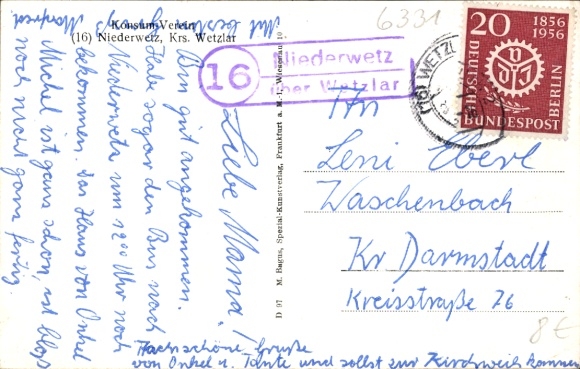 Konsum-Verein
(16) Niederwetz, Krs. Wetzlar
Liebe Mama!
Bin gut angekommen.
Habe sogar den Bus nach
Niederwetz um 12⁰⁰ Uhr noch
bekommen. Das Haus von Onkel
Michel ist ganz schön, ist bloß
noch nicht ganz fertig.
Manfred
Nachschöne Grüße
von Onkel u. Tante und sollst zur Kirchweih kommen
D 97 M. Bagus, Spezial-Kunstverlag, Frankfurt a. M., Wiesenau 10
16
Niederwetz
über Wetzlar
6331
(16) WETZL
20
1856
1956
DEUTSCHE
BUNDESPOST
BERLIN
VDI
An
Leni Eberl
Waschenbach
Kr Darmstadt
Kreisstraße 76
8€